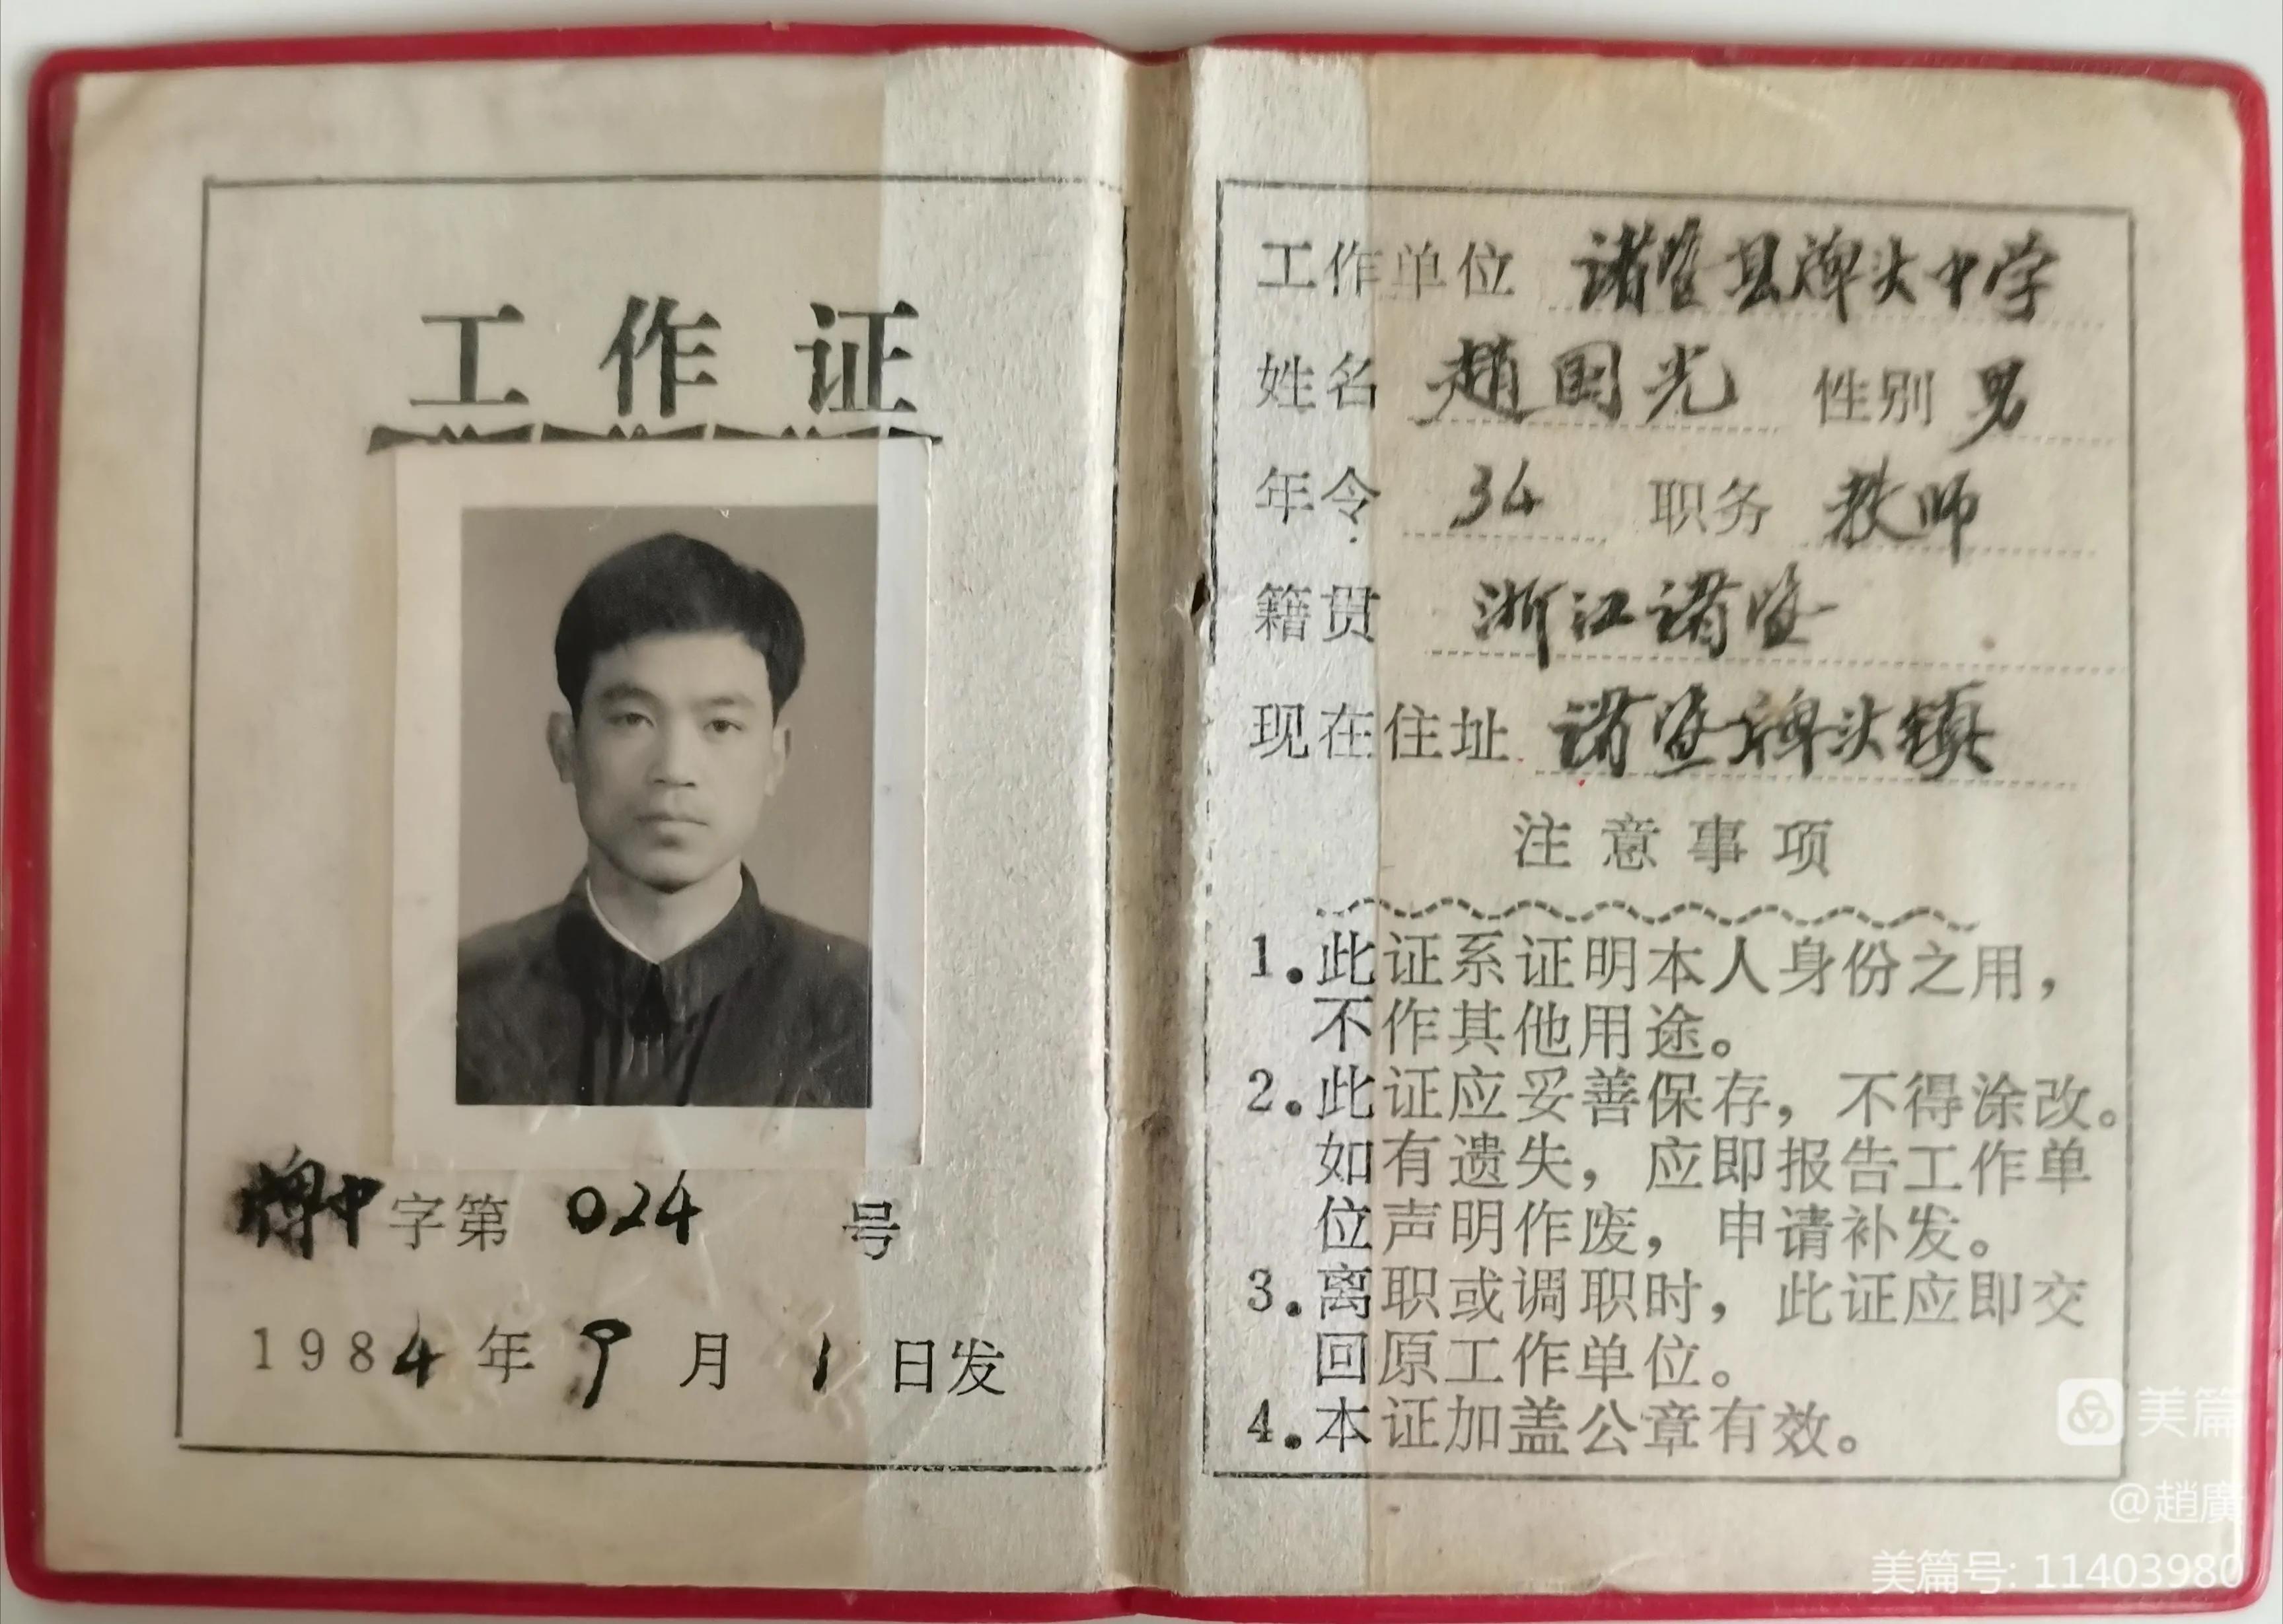 工作证
牌中字第 024 号
1984年9月1日发
工作单位 诸暨县牌头中学
姓名 赵国光 性别 男
年令 34 职务 教师
籍贯 浙江诸暨
现在住址 诸暨牌头镇
注意事项
1.此证系证明本人身份之用，
不作其他用途。
2.此证应妥善保存，不得涂改。
如有遗失，应即报告工作单
位声明作废，申请补发。
3.离职或调职时，此证应即交
回原工作单位。
4.本证加盖公章有效。
美篇
@趙廣
美篇号: 11403980